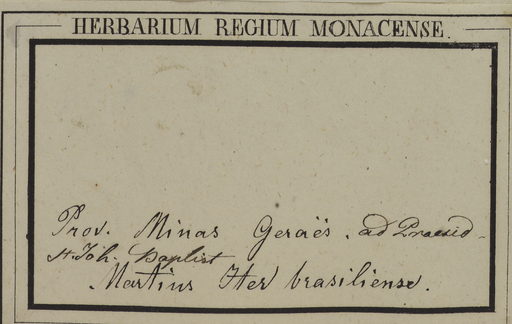 HERBARIUM REGIUM MONACENSE.
Prov. Minas Geraës. ad Praesid-
St. Joh. Baptist
Martius Iter brasiliense.